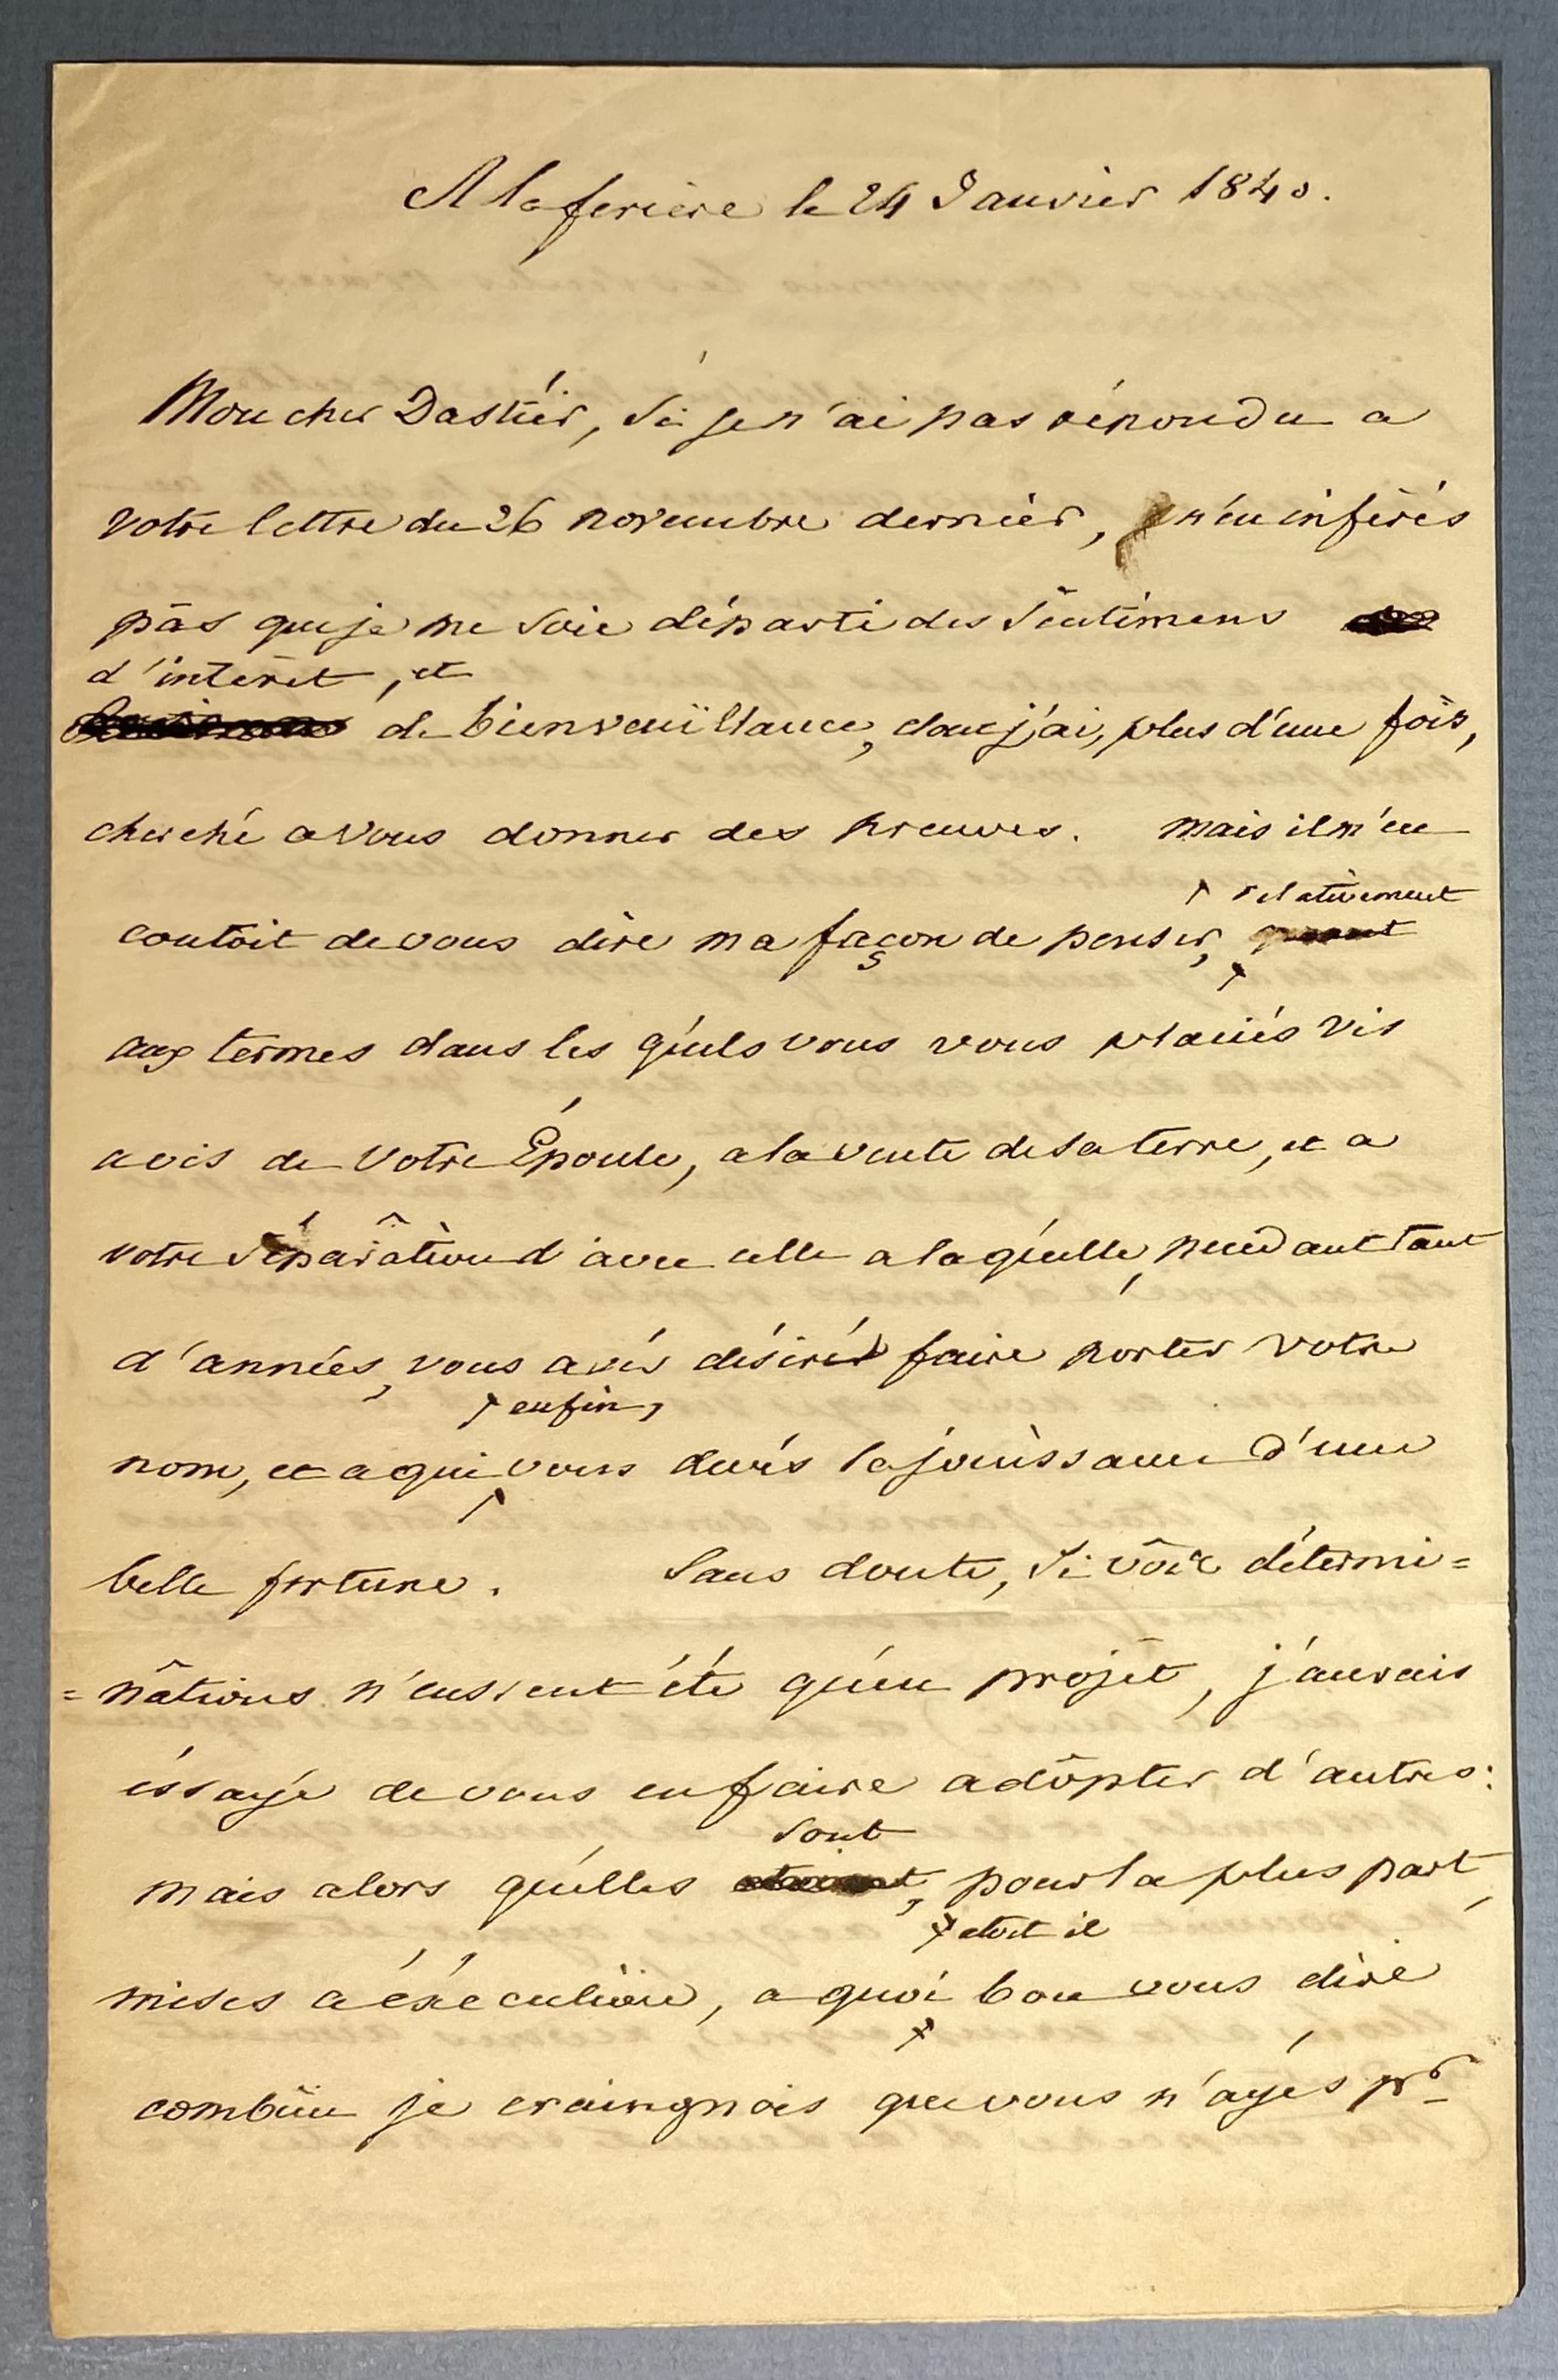 A la feriere le 24 Janvier 1840.
Mon cher Dastier, si je n'ai pas répondu a
votre lettre du 26 novembre dernièr, n'en inférés
pas que je me soie départi des sentimens
d'intérèt, et
de bienveuïllance, donc j'ai, plus d'une fois,
cherché a vous donner des preuves. mais il m'en
relativement
coutoit de vous dire ma façon de penser,
aux termes dans les quéls vous vous placiés vis
avis de votre Épouse, a la vente de sa terre, et a
votre séparâtion d'avec celle a la quélle, pendant tant
d'années, vous avés désiré faire porter votre
enfin,
nom, et a qui vous devés la jouissance d'une
belle fortune. Sans doute, si vos détermi=
=nâtions n'eussent été qu'en projèt, j'aurais
éssayé de vous en faire adôpter d'autres:
sont
mais alors qu'elles, pour la plus part,
étoit il
mises a éxécution, a quoi bon vous dire
combien je craingnois que vous n'ayés pr